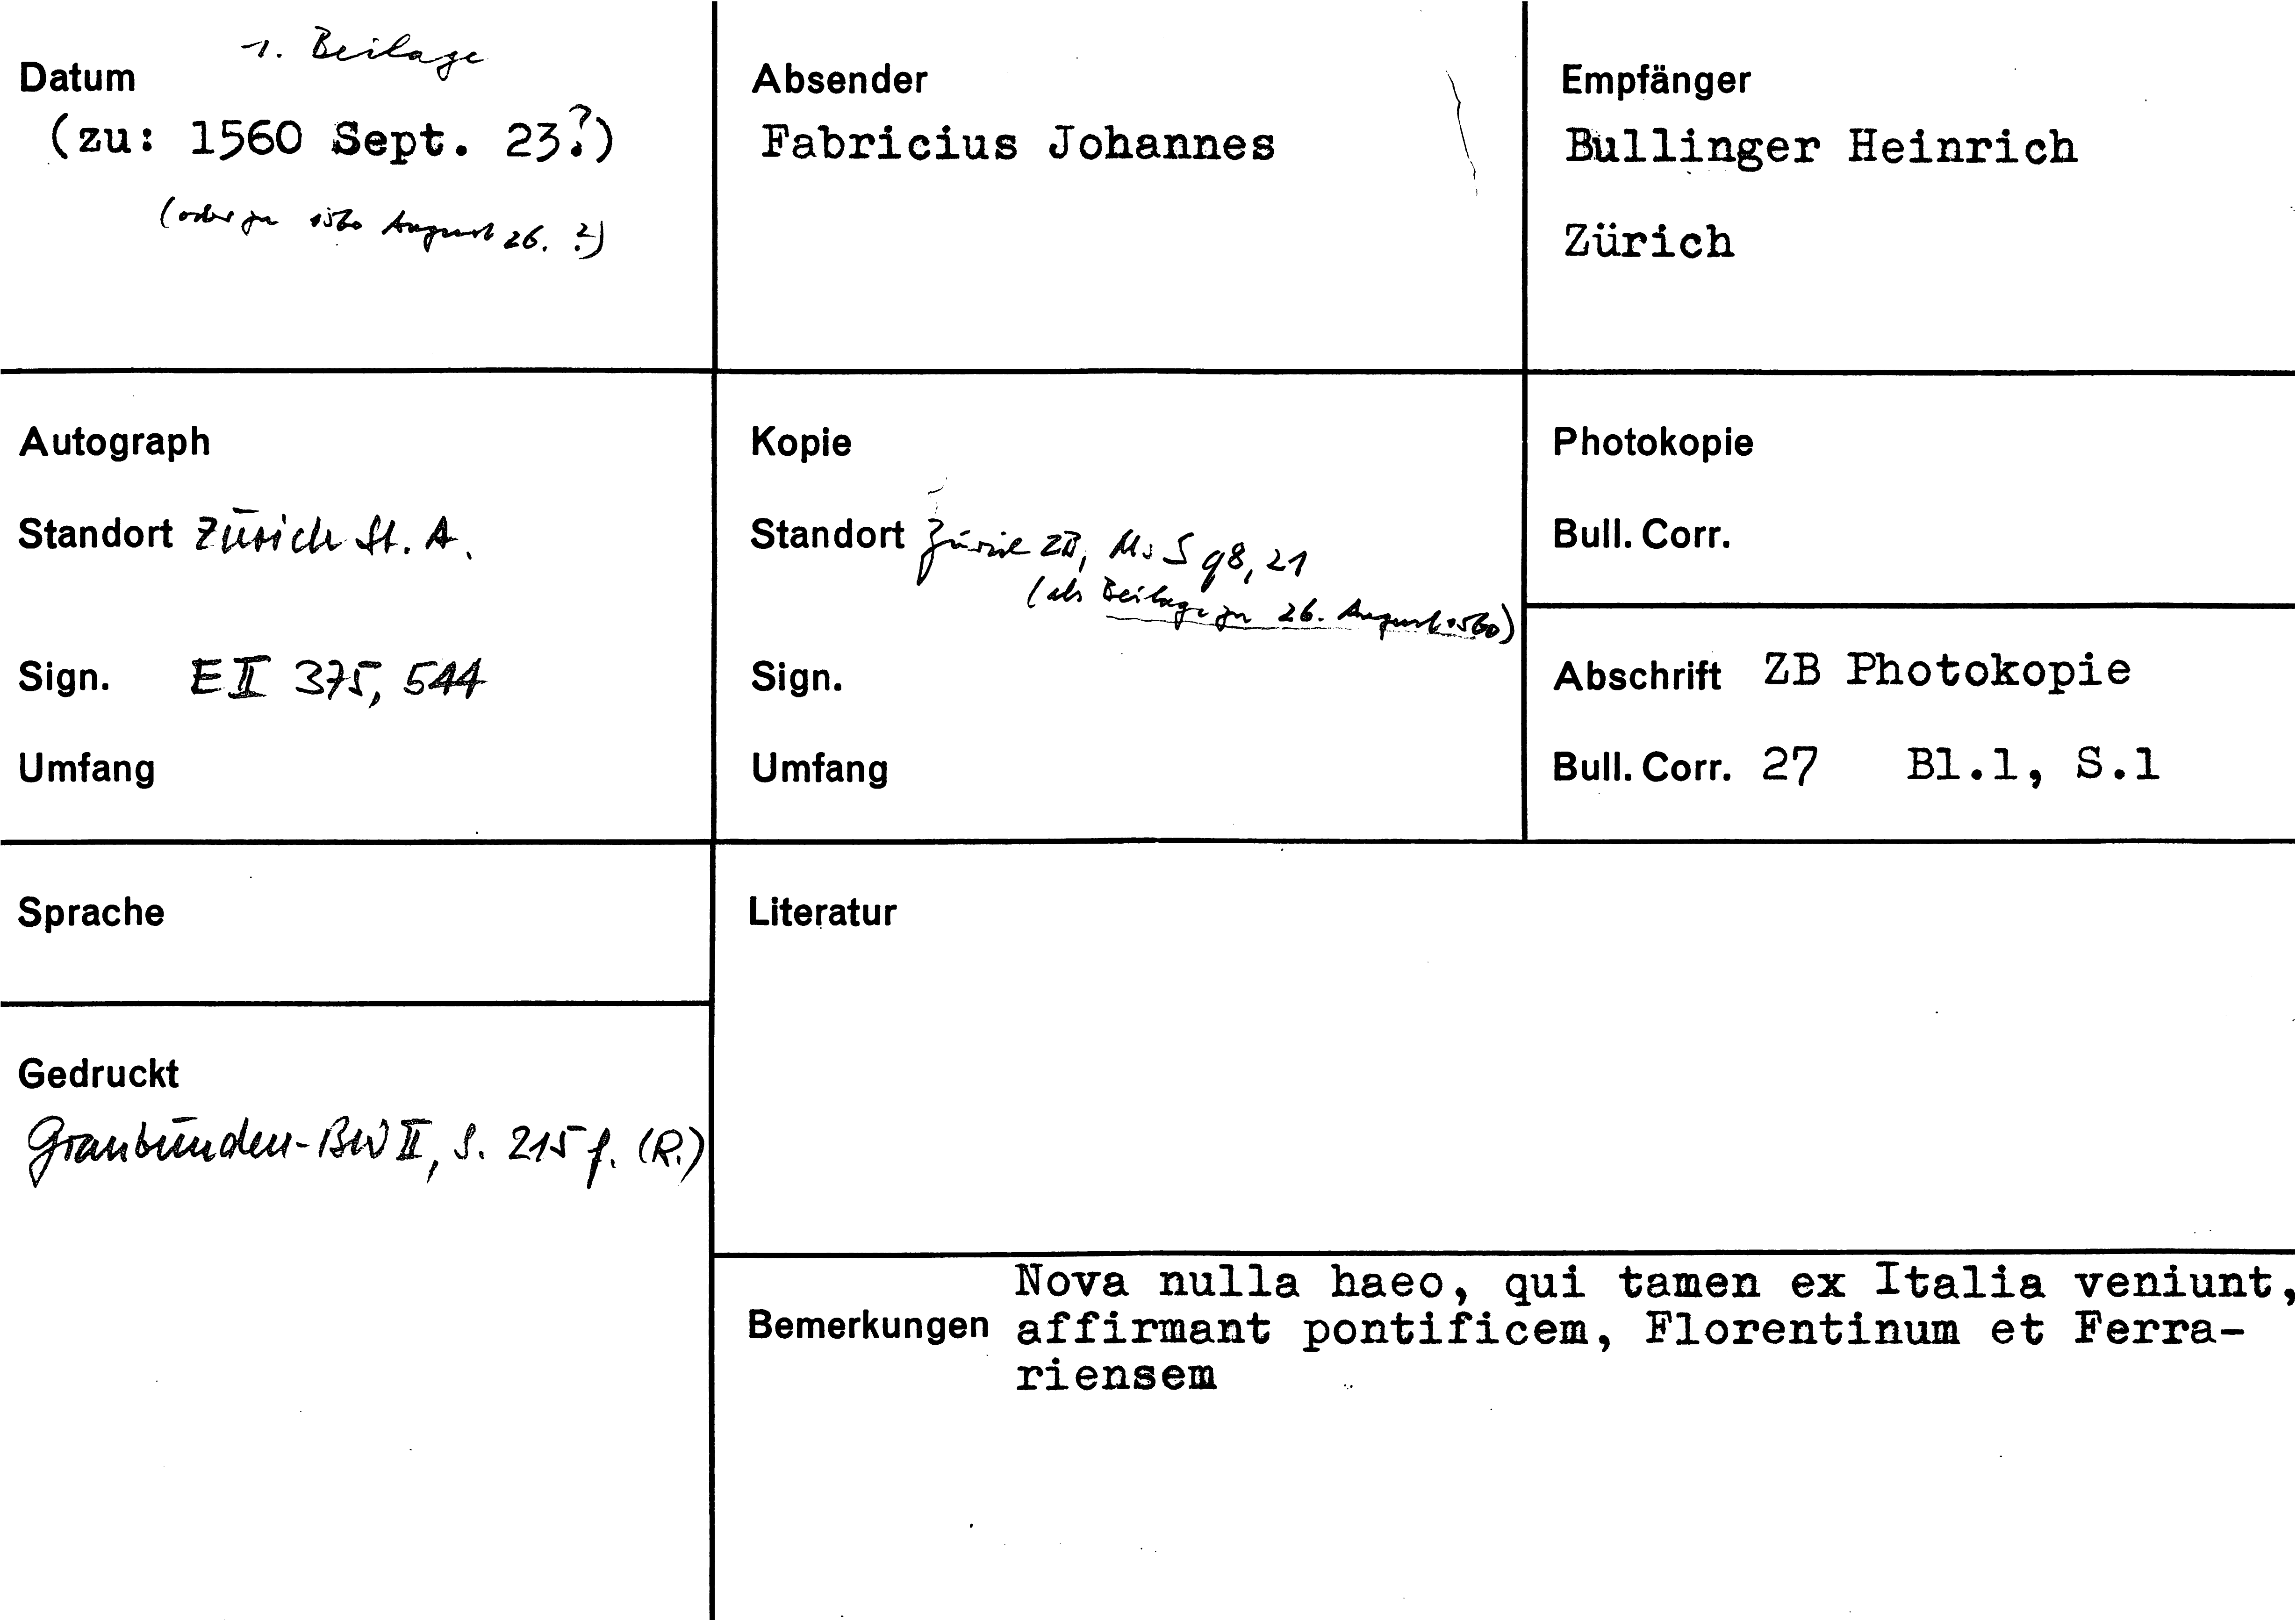 1. Beilage
Datum
(zu: 1560 Sept. 23?)
(oder zu 1560 August 26. ?)
Absender
Fabricius Johannes
Empfänger
Bullinger Heinrich
Zürich
Autograph
Standort Zürich St. A.
Sign. E II 375, 544
Umfang
Kopie
Standort Zürich ZB, Ms S 98, 21
(als Beilage zu 26. August 1560)
Sign.
Umfang
Photokopie
Bull. Corr.
Abschrift ZB Photokopie
Bull. Corr. 27 Bl.1, S.1
Sprache
Literatur
Gedruckt
Graubünden-BW II, S. 215 f. (R.)
Bemerkungen
Nova nulla haeo, qui tamen ex Italia veniunt,
affirmant pontificem, Florentinum et Ferra-
riensem